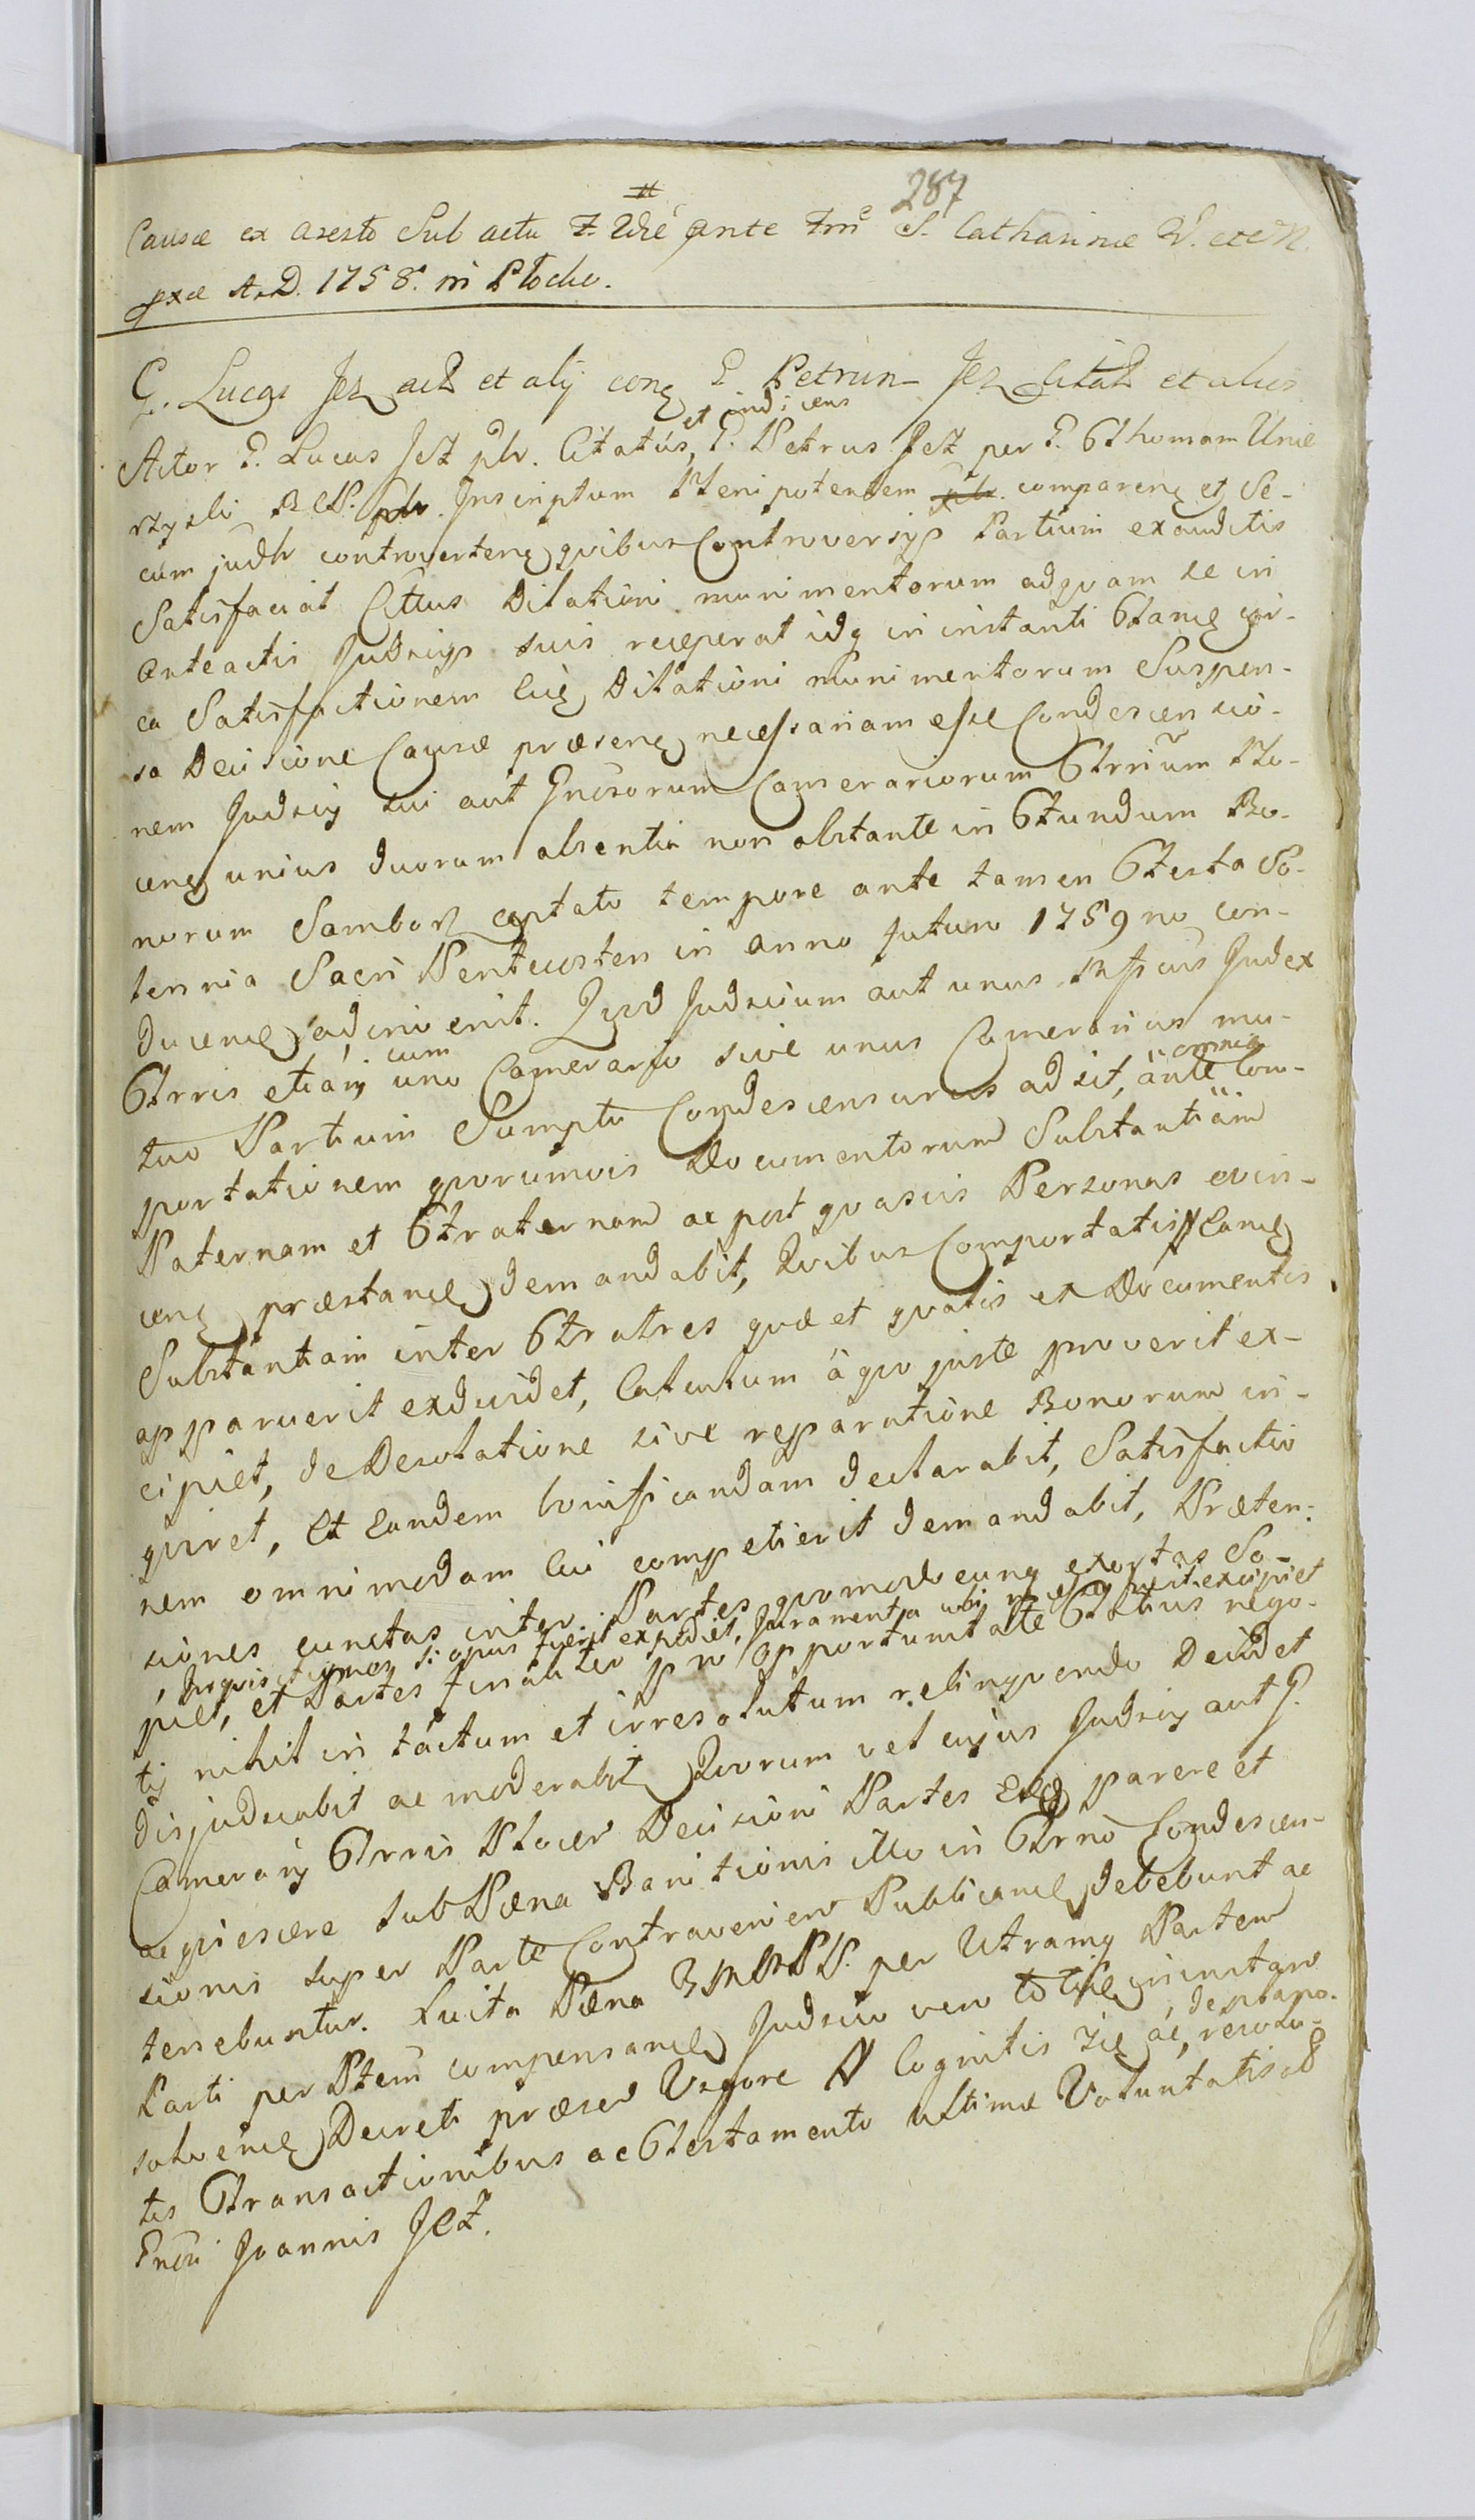 287
Causæ ex aresto Sub actu ante S. Catharinæ V. et M.
A. D. 1758. in Plocko.
G. Lucas Jeż act et alij conq G. Petrum Jeż Citat et alios
Actor G. Lucas Jeż plr. Citatus, et indicens G. Petrus Jeż per G. Thomam Unie
rzyski Inscriptum Plenipotentem comparenq et Se-
cum judtr controvertenq quibus Controversijs Partium exauditis
Satisfaciat Cittus Dilationi munimentorum ad quam se in
anteactis Judicijs suis receperat idq in instanti Stanq cir-
ca Satisfactionem Ejq Dilationi munimentorum Suspen-
sa Decisione Causæ præsenq necessariam esse Condescensio-
nem Judicij sui aut Gnosorum Camerariorum Trrium Plo-
cenq unius duorum absentia non obstante in Fundum Bo-
norum Samborz captato tempore ante tamen Festa So-
lennia Sacri Pentecosten in anno futuro 1759no con-
ducenq adinvenit. Quod Judicium aut unus Mfficus Judex
Trris etiam cum uno Camerario sive unus Camerarius mu-
tuo Partium Sumptu Condescensurus adsit, ante omnia Com-
portationem quorumvis Documentorum Substantiam
Paternam et Fraternam ac post quasvis Personas evin-
cenq præstanq demandabit, Quibus Comportatis Eanq
Substantiam inter Fratres quæ et qualis ex Documentis
apparuerit exdividet, Calculum à quo juste provenerit ex-
cipiet, de Desolatione sive reparatione Bonorum in-
quiret, Et Eandem bonificandam declarabit, Satisfactio
nem omnimodam cui competierit demandabit, Præten-
siones cunctas inter Partes quomodocunq exortas So-
, Inquisitiones si opus fuerit expediet, Juramenta ubi necesse fuerit excipiet
piet, et Partes finaliter pro opportunitate Status nego-
tij nihil intactum et irresolutum relinquendo Decidet
disjudicabit ac moderabit Quorum vel cujus Judicij aut G.
Camerarij Trris Plocen Decisioni Partes parere et
acquiescere sub Pæna Banitionis illo in Trno Condescen-
sionis super Parte Contravenien Publicanq debebunt ac
tenebuntur. Luita Pæna per Utramq Partem
Parti per Ptem compensanq Judicio vero in instan
solvenq Decreti præsen Vigore N Cognitis ac, de præpo.
resolu-
tis Transactionibus ac Testamento ultimæ Voluntatis
Gnosi Joannis Jeż.